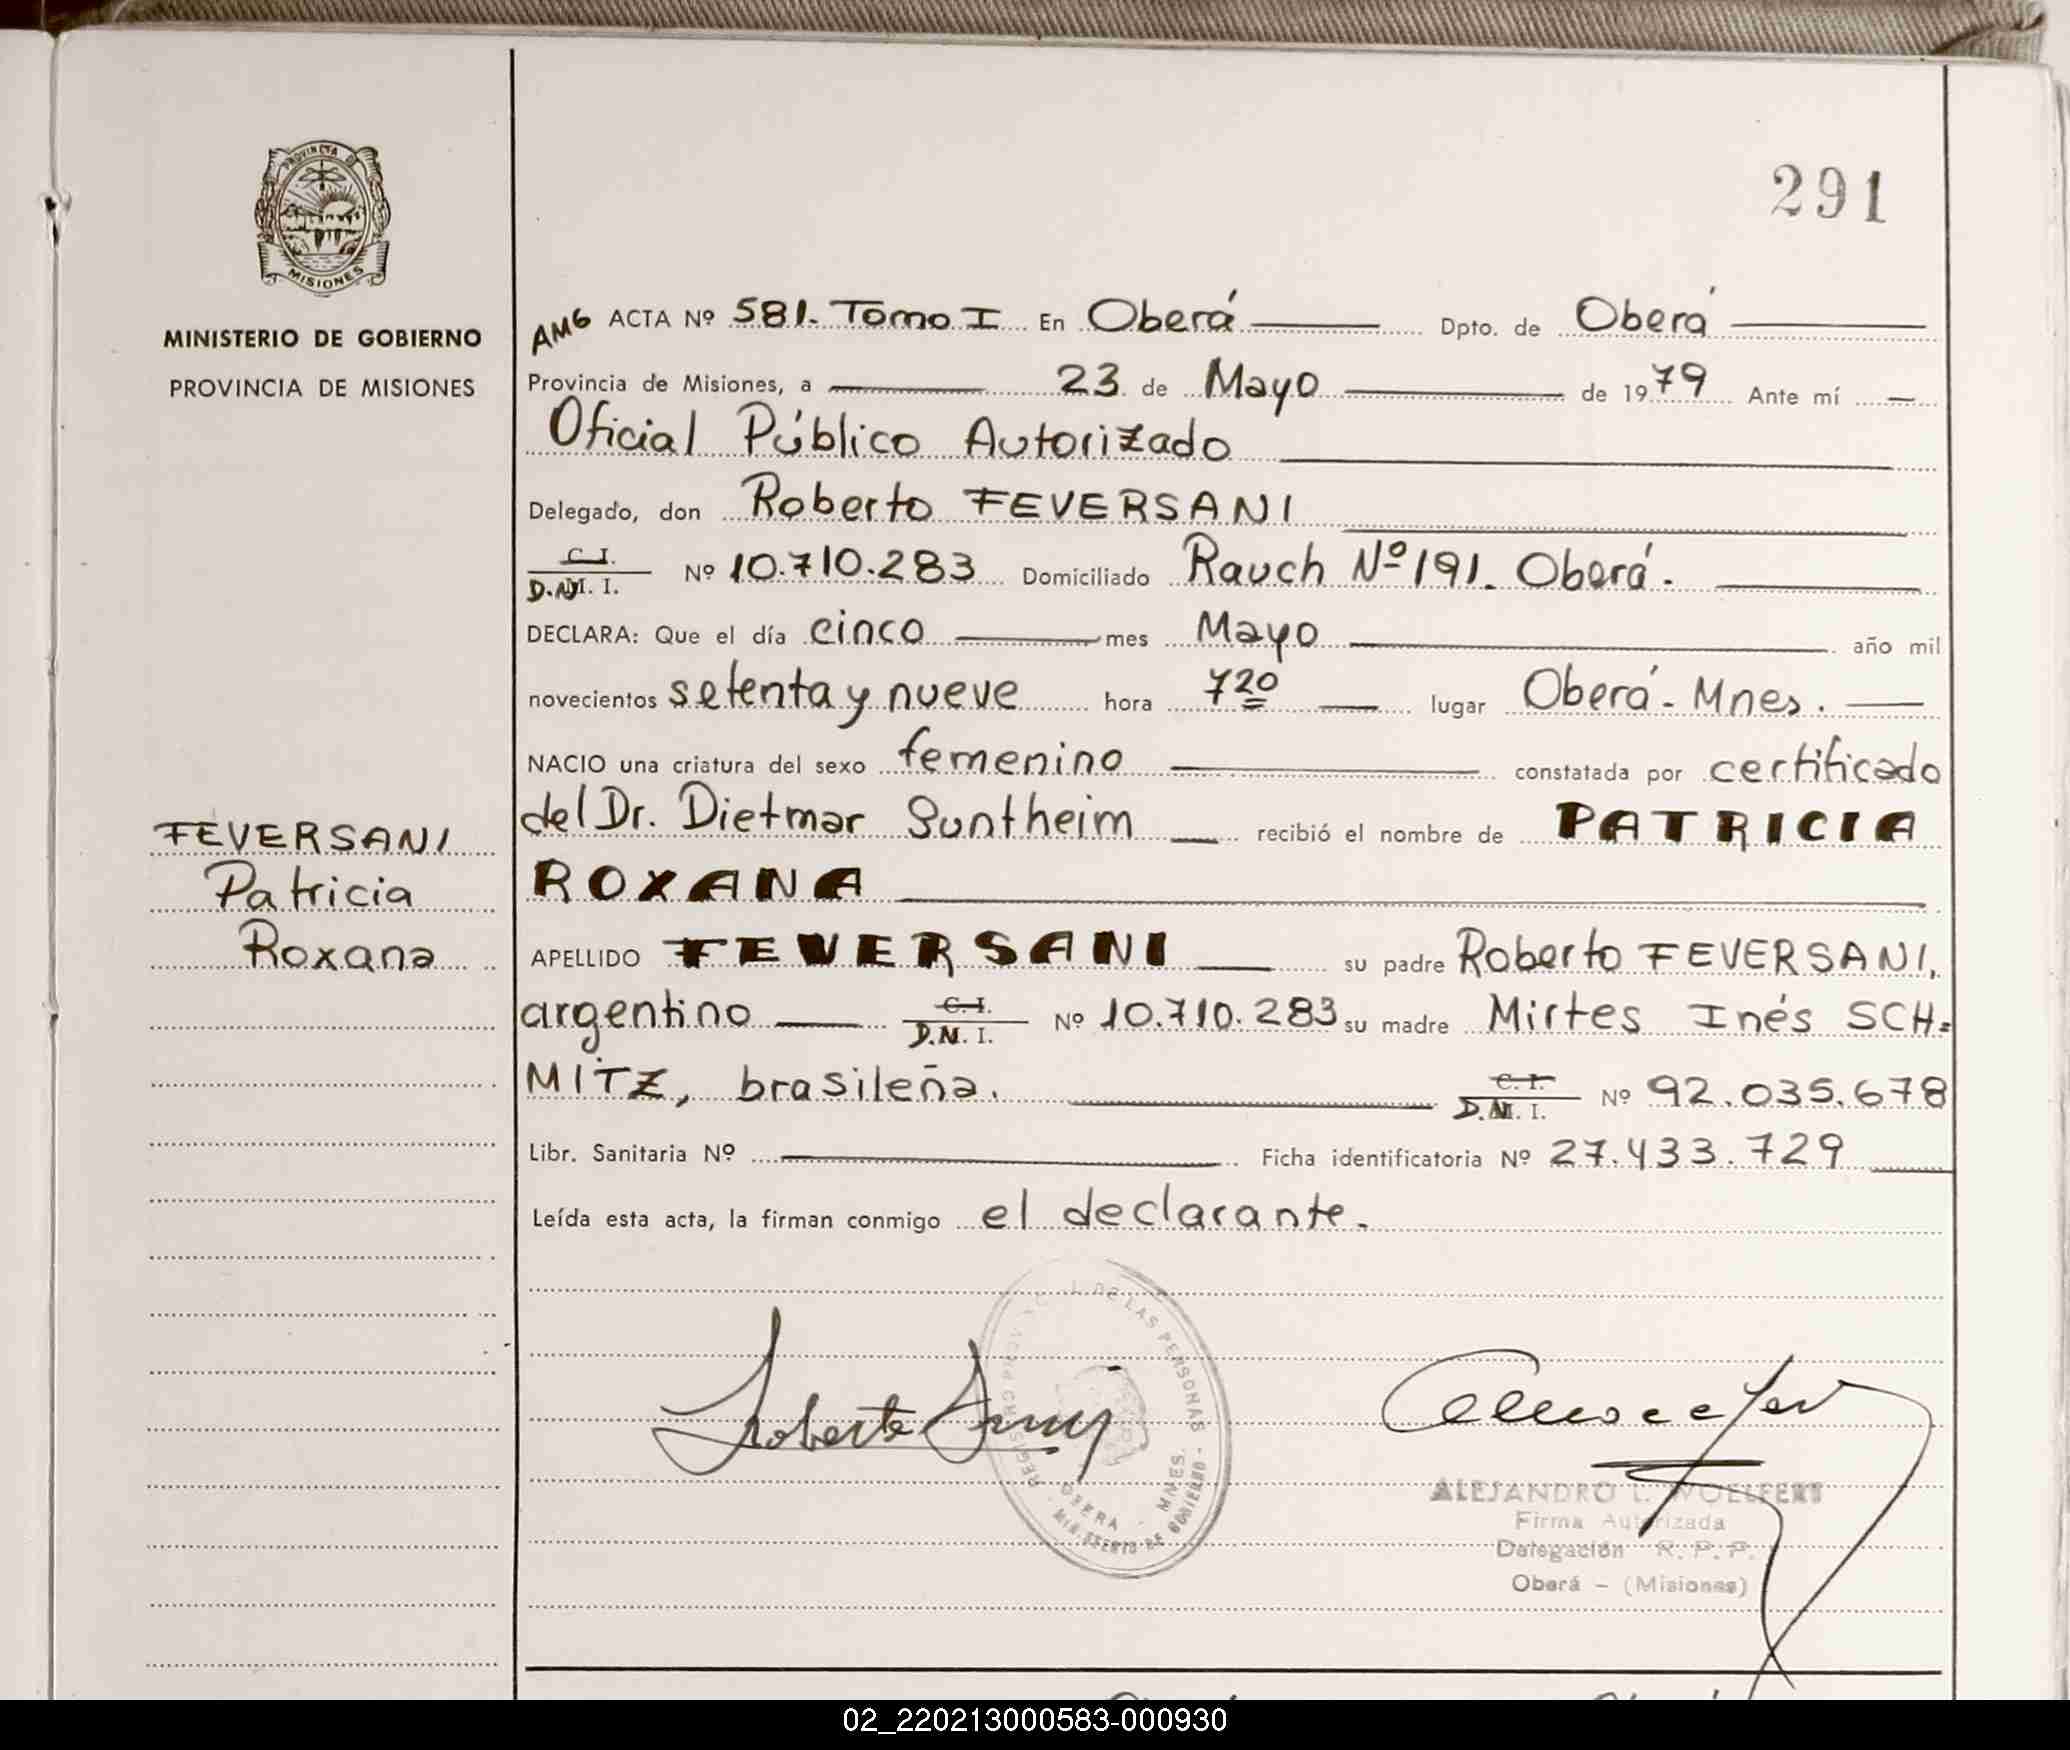 PROVINCIA DE
MISIONES
MINISTERIO DE GOBIERNO
PROVINCIA DE MISIONES
FEVERSANI
Patricia
Roxana
291
AMG ACTA Nº 581. Tomo I En Oberá Dpto. de Oberá
Provincia de Misiones, a 23 de Mayo de 1979 Ante mí
Oficial Público Autorizado
Delegado, don Roberto FEVERSANI
C. I.
D.N.I. Nº 10.710.283 Domiciliado Rauch Nº 191. Oberá.
DECLARA: Que el día cinco mes Mayo año mil
novecientos setenta y nueve hora 7 20 lugar Oberá - Mnes.
NACIO una criatura del sexo femenino constatada por certificado
del Dr. Dietmar Suntheim recibió el nombre de PATRICIA
ROXANA
APELLIDO FEVERSANI su padre Roberto FEVERSANI,
argentino C. I. D.N.I. Nº 10.710.283 su madre Mirtes Inés SCH=
MITZ, brasileña. C. I. D.N.I. Nº 92.035.678
Libr. Sanitaria Nº Ficha identificatoria Nº 27.433.729
Leída esta acta, la firman conmigo el declarante.
REGISTRO PROV. DE LAS PERSONAS
OBERA - MNES.
MINISTERIO DE GOBIERNO
Roberto
ALEJANDRO L. WOELFERT
Firma Autorizada
Delegación R. P. P.
Oberá - (Misiones)
02_220213000583-000930